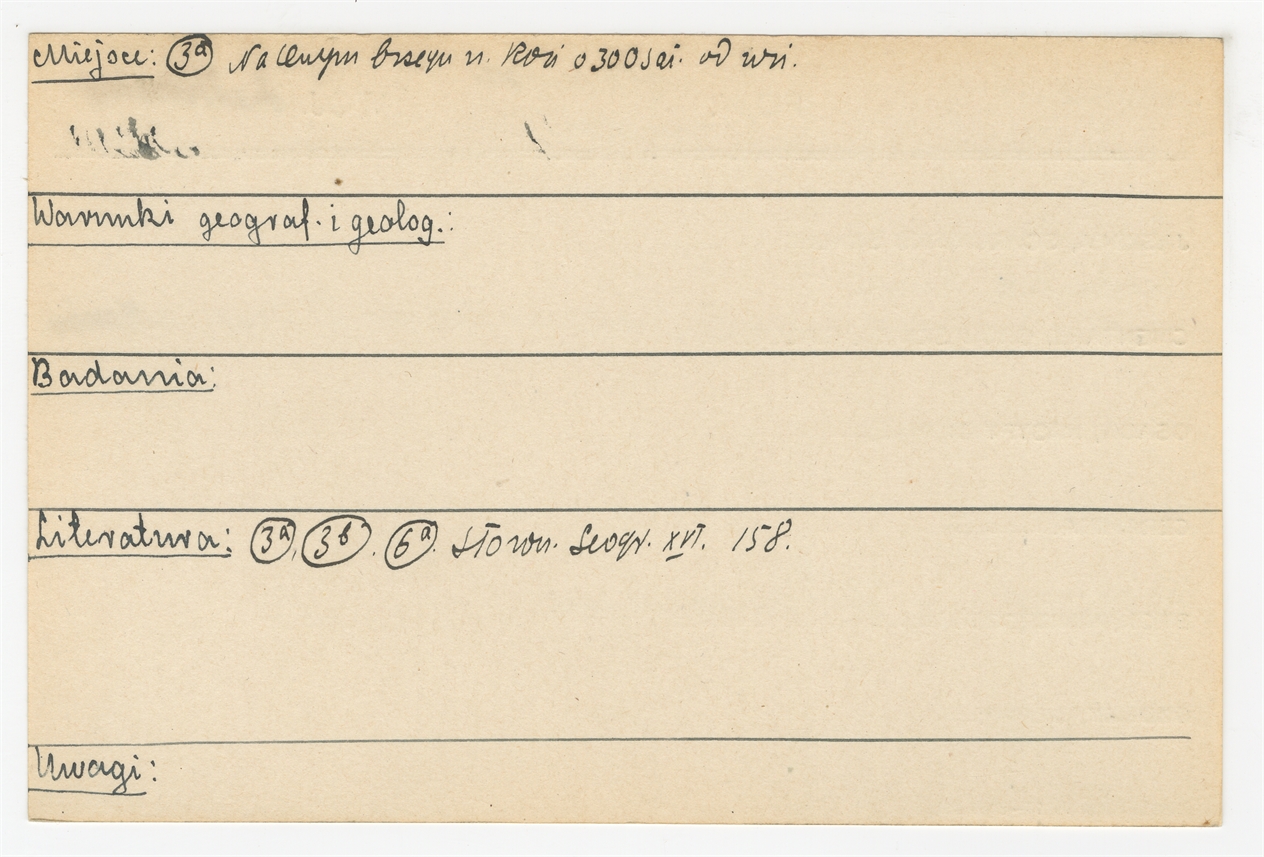 Miejsce: 3a Na lewym brzegu n. Rosi o 300 saż. od wsi.
Warunki geograf. i geolog.:
Badania:
Literatura: 3a, 3b, 6a. Słown. Geogr. XVI. 158.
Uwagi: